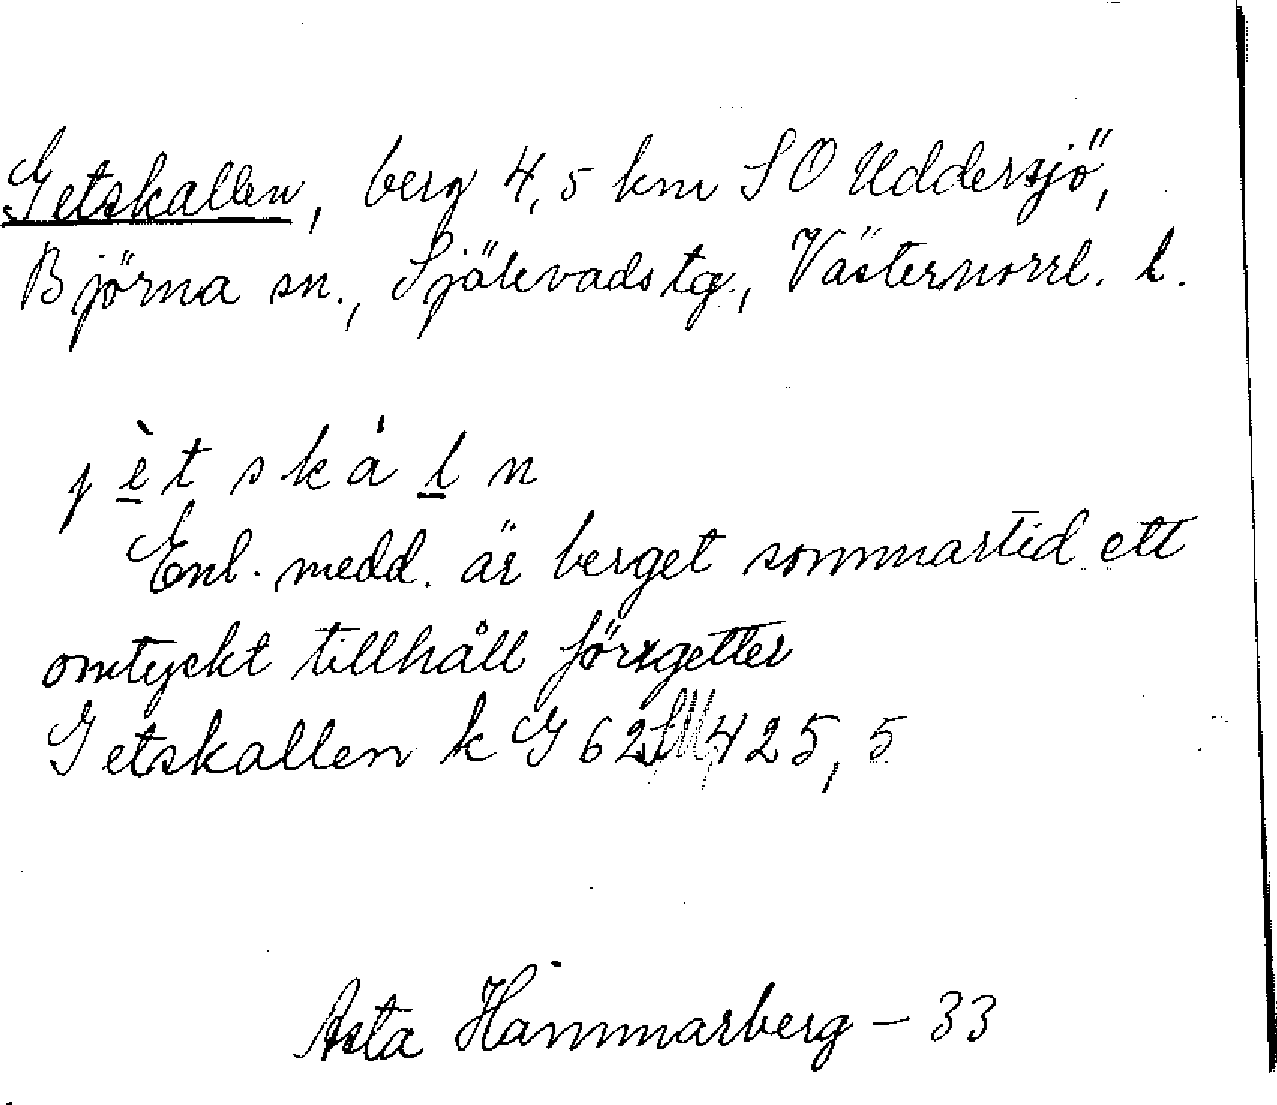 Getskallen, berg 4,5 km SO Uddersjö,
Björna sn., Själevads tg., Västernorrl. l.
jètskáln
Enl. medd. är berget sommartid ett
omtyckt tillhåll för getter
Getskallen k G 62 425,5
Asta Hammarberg – 33